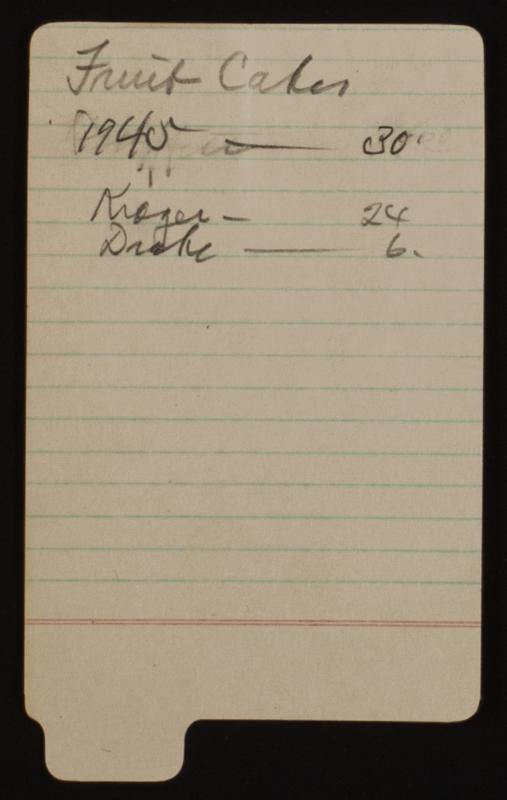 Fruit Cakes
1945 — 30
Kroger – 24
Drake — 6.